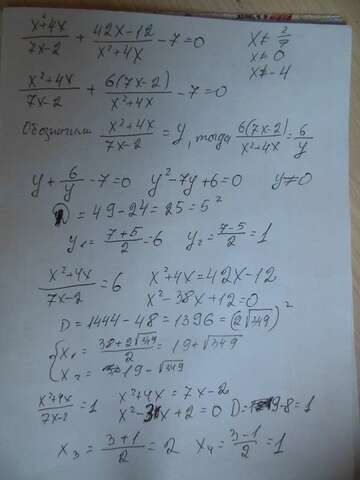 x²+4x/7x-2 + 42x-12/x²+4x - 7=0 x≠ 2/7
x≠0
x≠-4
x²+4x/7x-2 + 6(7x-2)/x²+4x - 7=0
Обозначим x²+4x/7x-2 = y, тогда 6(7x-2)/x²+4x = 6/y
y + 6/y - 7=0 y²-7y+6=0 y≠0
D = 49-24=25=5²
y₁ = 7+5/2 = 6 y₂ = 7-5/2 = 1
x²+4x/7x-2 = 6 x²+4x=42x-12
x²-38x+12=0
D=1444-48=1396=(2√349)²
{x₁ = 38+2√349/2 = 19+√349
x₂ = 19-√349
x²+4x/7x-2 = 1 x²+4x=7x-2
x²-3x+2=0 D=9-8=1
x₃ = 3+1/2 = 2 x₄ = 3-1/2 = 1